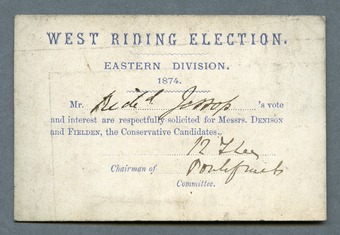 WEST RIDING ELECTION.
EASTERN DIVISION.
1874.
Mr. Jessop 's vote
and interest are respectfully solicited for Messrs. DENISON
and FIELDEN, the Conservative Candidates.
Chairman of Pontefract
Committee.